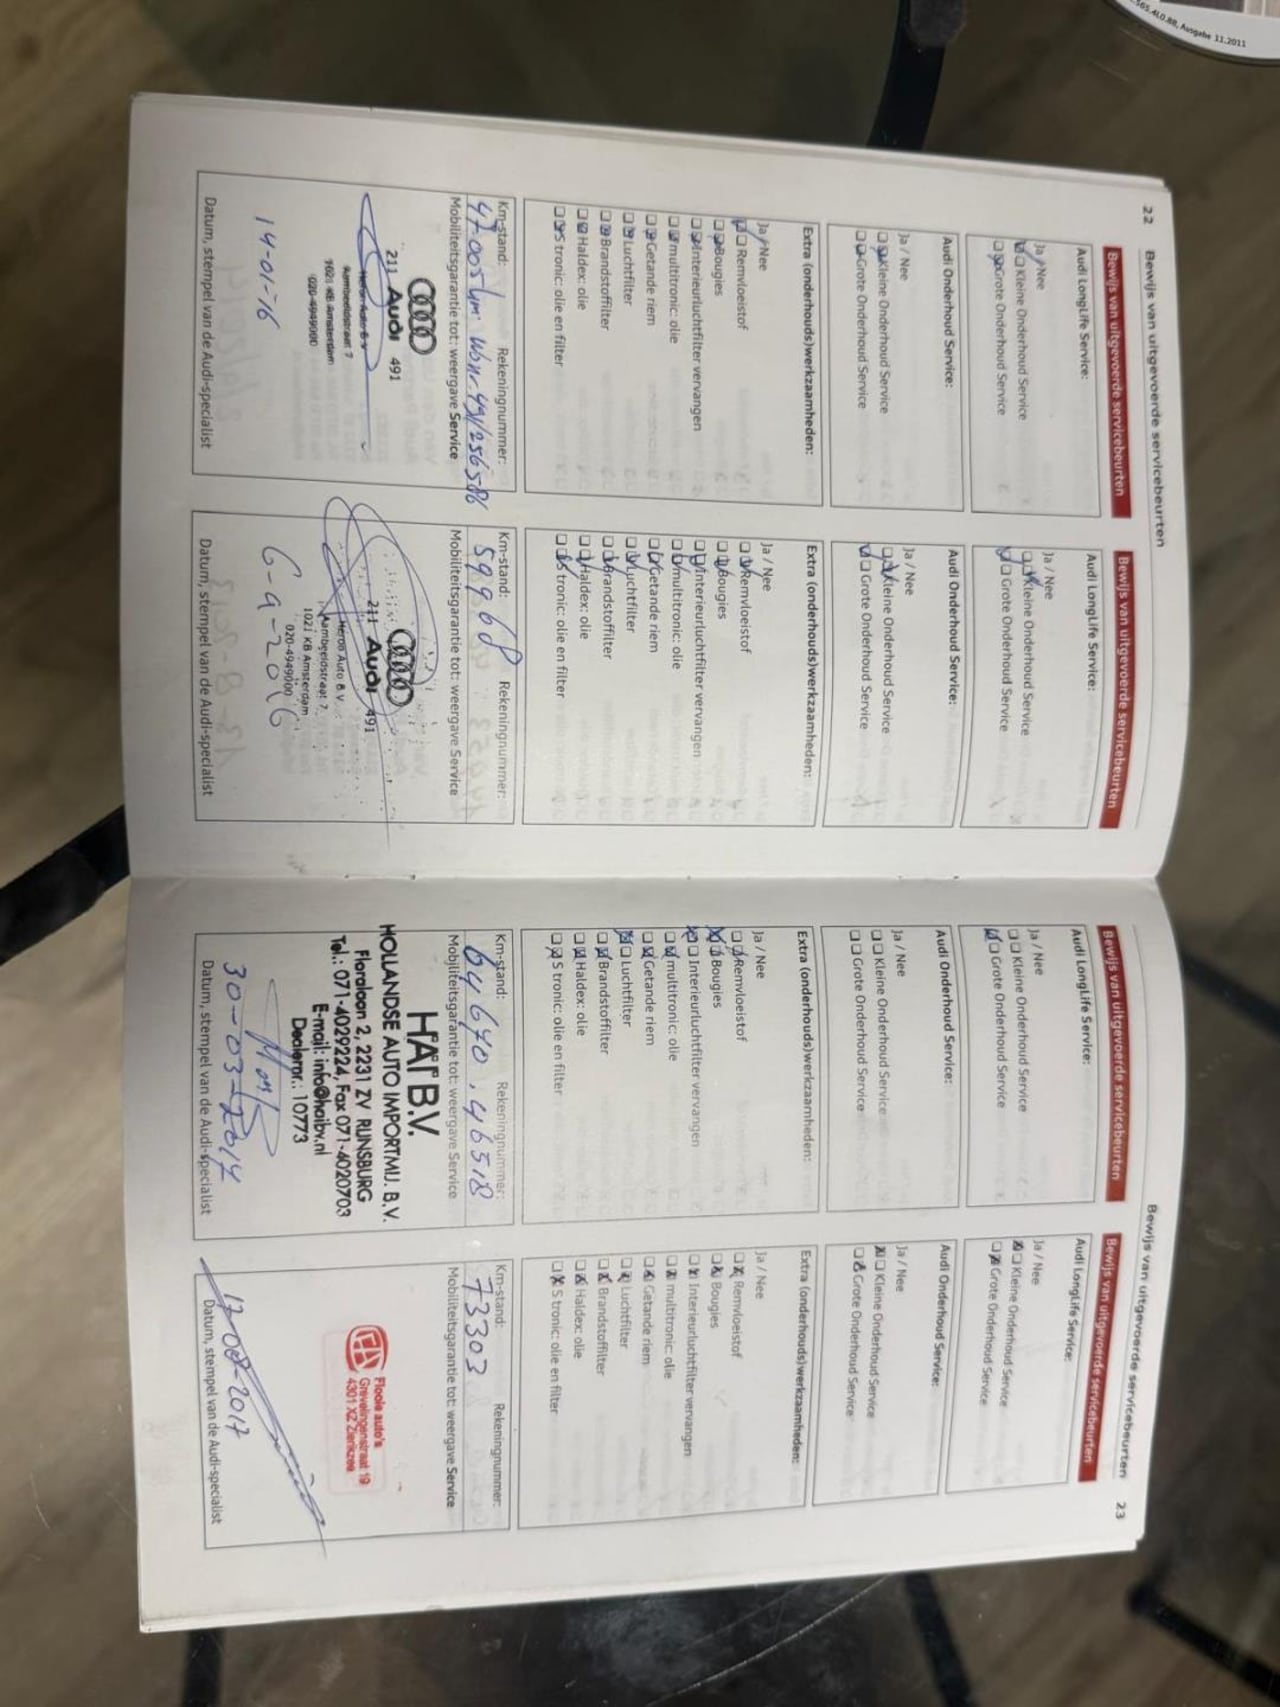 565.4L0.88, Ausgabe 11.2011
22 Bewijs van uitgevoerde servicebeurten
Bewijs van uitgevoerde servicebeurten
Audi LongLife Service:
Ja / Nee
Kleine Onderhoud Service
Grote Onderhoud Service
Audi Onderhoud Service:
Ja / Nee
Kleine Onderhoud Service
Grote Onderhoud Service
Extra (onderhouds)werkzaamheden:
Ja / Nee
Remvloeistof
Bougies
Interieurluchtfilter vervangen
multitronic: olie
Getande riem
Luchtfilter
Brandstoffilter
Haldex: olie
S tronic: olie en filter
Km-stand: Rekeningnummer:
47.005 km Wonr 491/256586
Mobiliteitsgarantie tot: weergave Service
211 Audi 491
Heron Auto B.V.
Aambeeldstraat 7
1021 KB Amsterdam
020-4949000
14-01-16
Datum, stempel van de Audi-specialist
Bewijs van uitgevoerde servicebeurten
Audi LongLife Service:
Ja / Nee
Kleine Onderhoud Service
Grote Onderhoud Service
Audi Onderhoud Service:
Ja / Nee
Kleine Onderhoud Service
Grote Onderhoud Service
Extra (onderhouds)werkzaamheden:
Ja / Nee
Remvloeistof
Bougies
Interieurluchtfilter vervangen
multitronic: olie
Getande riem
Luchtfilter
Brandstoffilter
Haldex: olie
S tronic: olie en filter
Km-stand: Rekeningnummer:
59968
Mobiliteitsgarantie tot: weergave Service
211 Audi 491
Heron Auto B.V.
Aambeeldstraat 7
1021 KB Amsterdam
020-4949000
6-9-2016
Datum, stempel van de Audi-specialist
Bewijs van uitgevoerde servicebeurten 23
Bewijs van uitgevoerde servicebeurten
Audi LongLife Service:
Ja / Nee
Kleine Onderhoud Service
Grote Onderhoud Service
Audi Onderhoud Service:
Ja / Nee
Kleine Onderhoud Service
Grote Onderhoud Service
Extra (onderhouds)werkzaamheden:
Ja / Nee
Remvloeistof
Bougies
Interieurluchtfilter vervangen
multitronic: olie
Getande riem
Luchtfilter
Brandstoffilter
Haldex: olie
S tronic: olie en filter
Km-stand: Rekeningnummer:
64670, 46518
Mobiliteitsgarantie tot: weergave Service
HAI B.V.
HOLLANDSE AUTO IMPORTMIJ. B.V.
Floralaan 2, 2231 ZV RIJNSBURG
Tel.: 071-4029224, Fax 071-4020703
E-mail: info@haibv.nl
Dealernr.: 10773
30-03-2017
Datum, stempel van de Audi-specialist
Bewijs van uitgevoerde servicebeurten
Audi LongLife Service:
Ja / Nee
Kleine Onderhoud Service
Grote Onderhoud Service
Audi Onderhoud Service:
Ja / Nee
Kleine Onderhoud Service
Grote Onderhoud Service
Extra (onderhouds)werkzaamheden:
Ja / Nee
Remvloeistof
Bougies
Interieurluchtfilter vervangen
multitronic: olie
Getande riem
Luchtfilter
Brandstoffilter
Haldex: olie
S tronic: olie en filter
Km-stand: Rekeningnummer:
73303
Mobiliteitsgarantie tot: weergave Service
Flooie auto's
Grevelingenstraat 19
4301 XZ Zierikzee
17-08-2017
Datum, stempel van de Audi-specialist